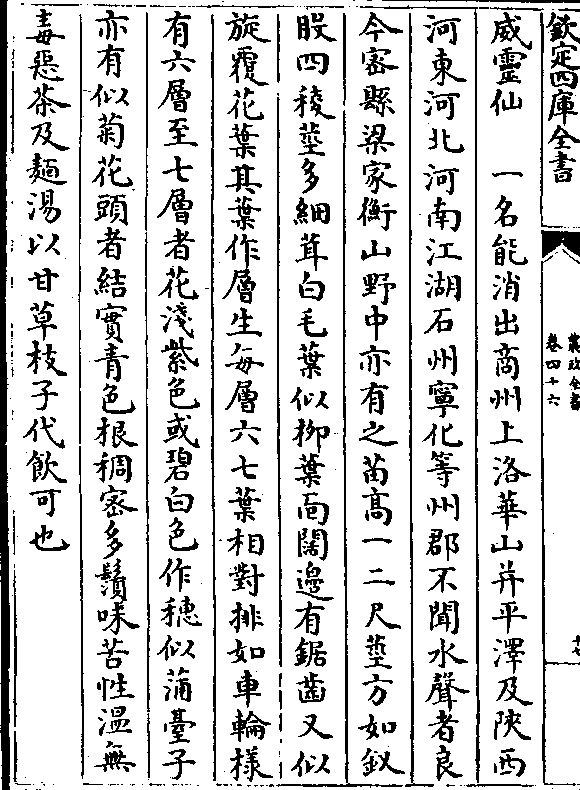 欽定四庫全書
農政全書
卷四十六
威靈仙　一名能消出商州上洛華山并平澤及陜西
河東河北河南江湖石州寧化等州郡不聞水聲者良
今密縣梁家衝山野中亦有之苗髙一二尺莖方如釵
股四稜莖多細茸白毛葉似柳葉而闊邊有鋸齒又似
旋覆花葉其葉作層生每層六七葉相對排如車輪様
有六層至七層者花淺紫色或碧白色作穗似蒲臺子
亦有似菊花頭者結實青色根稠密多鬚味苦性溫無
毒惡茶及麵湯以甘草枝子代飲可也